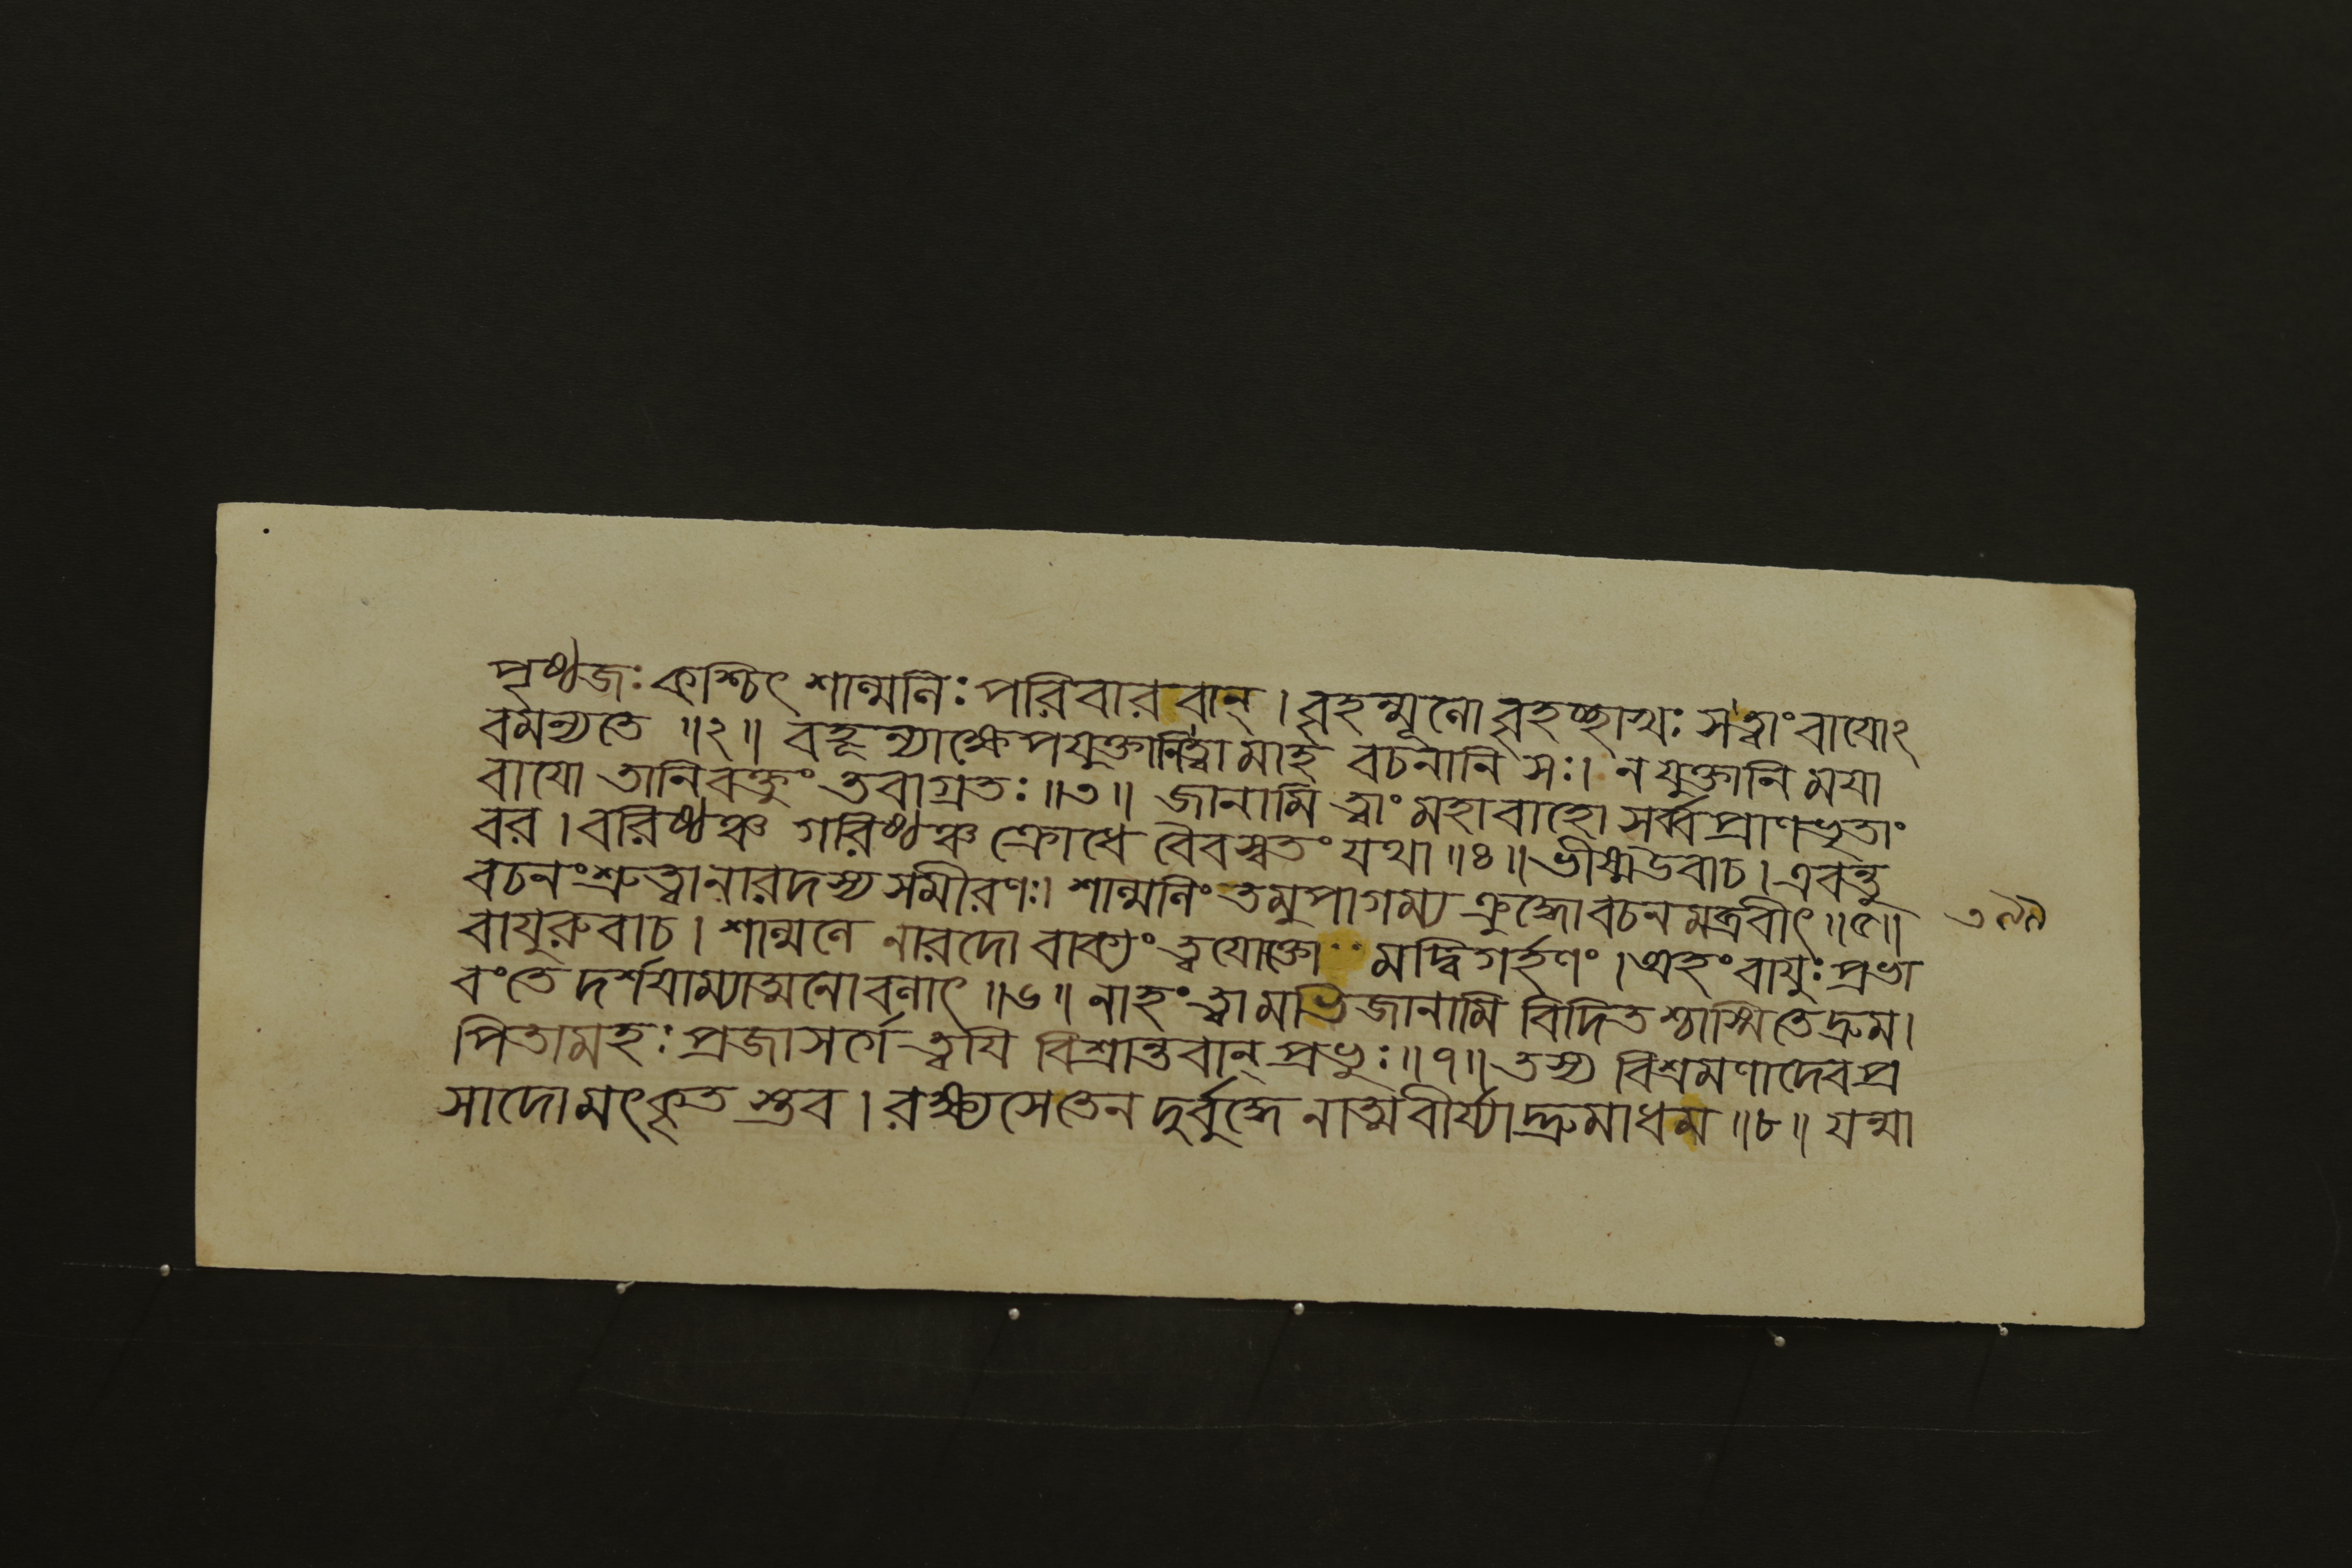 পৃষ্ঠজঃ কশ্চিৎ শাল্মলিঃ পরিবারবান্ । বৃহন্মূলো বৃহচ্ছাখঃ স ত্বাং বাযোঽ
বমন্যতে ॥২॥ বহূন্যাক্ষেপযুক্তানি ত্বামাহ বচনানি সঃ। ন যুক্তানি মযা
বাযো তানি বক্তুং তবাগ্রতঃ ॥৩॥ জানামি ত্বাং মহাবাহো সর্ব্বপ্রাণভৃতাং
বর । বরিষ্ঠঞ্চ গরিষ্ঠঞ্চ ক্রোধে বৈবস্বতং যথা ॥৪॥ ভীষ্মউবাচ । এবন্তু
বচনং শ্রুত্বা নারদস্য সমীরণঃ। শাল্মলিং তমুপাগম্য ক্রুদ্ধো বচনমব্রবীৎ ॥৫॥
বাযুরুবাচ । শাল্মলে নারদো বাক্যং ত্বযোক্তো মদ্বিগর্হণং । অহং বাযুঃ প্রভা
বং তে দর্শযাম্যাত্মনো বলাৎ ॥৬॥ নাহং ত্বামভিজানামি বিদিতশ্চাসি মে দ্রুম।
পিতামহঃ প্রজাসর্গে ত্বযি বিশ্রান্তবান্ প্রভুঃ ॥৭॥ তস্য বিশ্রমণাদেব প্র
সাদো মৎকৃতস্তব । রক্ষ্যসে তেন দুর্বুদ্ধে নাত্মবীর্য্যাদ্দ্রুমাধম ॥৮॥ যন্মা